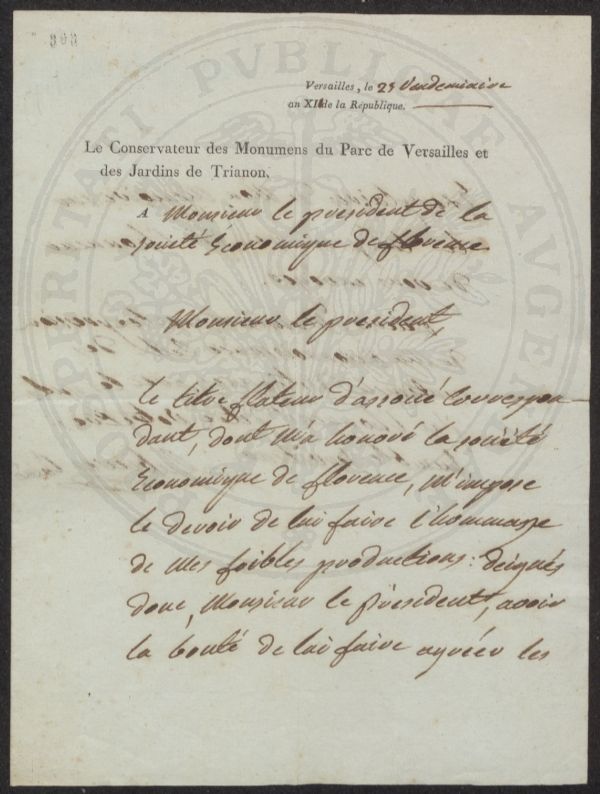 393
PROSPERITATI PUBLICAE AUGENDAE
Versailles, le 25 Vandemiaire
an XII de la République.
Le Conservateur des Monumens du Parc de Versailles et
des Jardins de Trianon,
A Monsieur le président de la
société Économique de florence
Monsieur le president,
le titre flateur d'associé Correspon
dant, dont m'a honoré la société
Économique de florence, m'impose
le devoir de lui faire l'hommage
de mes foibles productions: deignés
donc, Monsieur le président, avoir
la bonté de lui faire agréér les